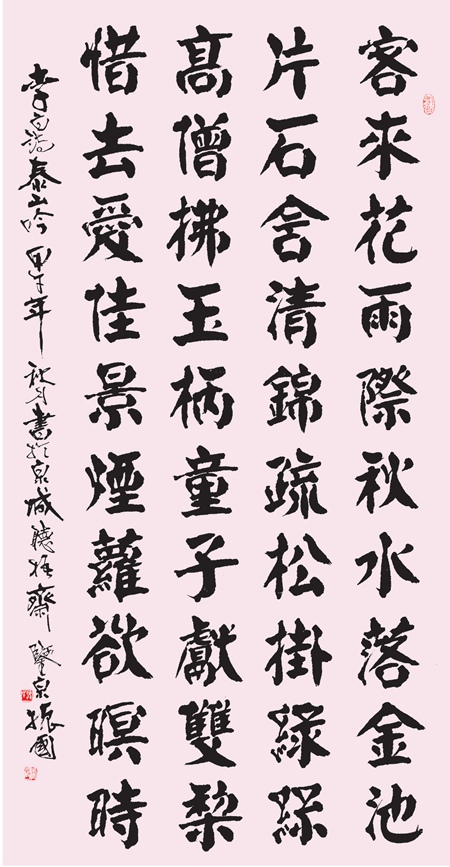 客來花雨際秋水落金池
片石舍清錦疏松掛綠絲
髙僧拂玉柄童子獻雙梨
惜去愛佳景煙蘿欲暝時
李白詩泰山吟 甲午年秋月書於泉城聽齋 泉振國